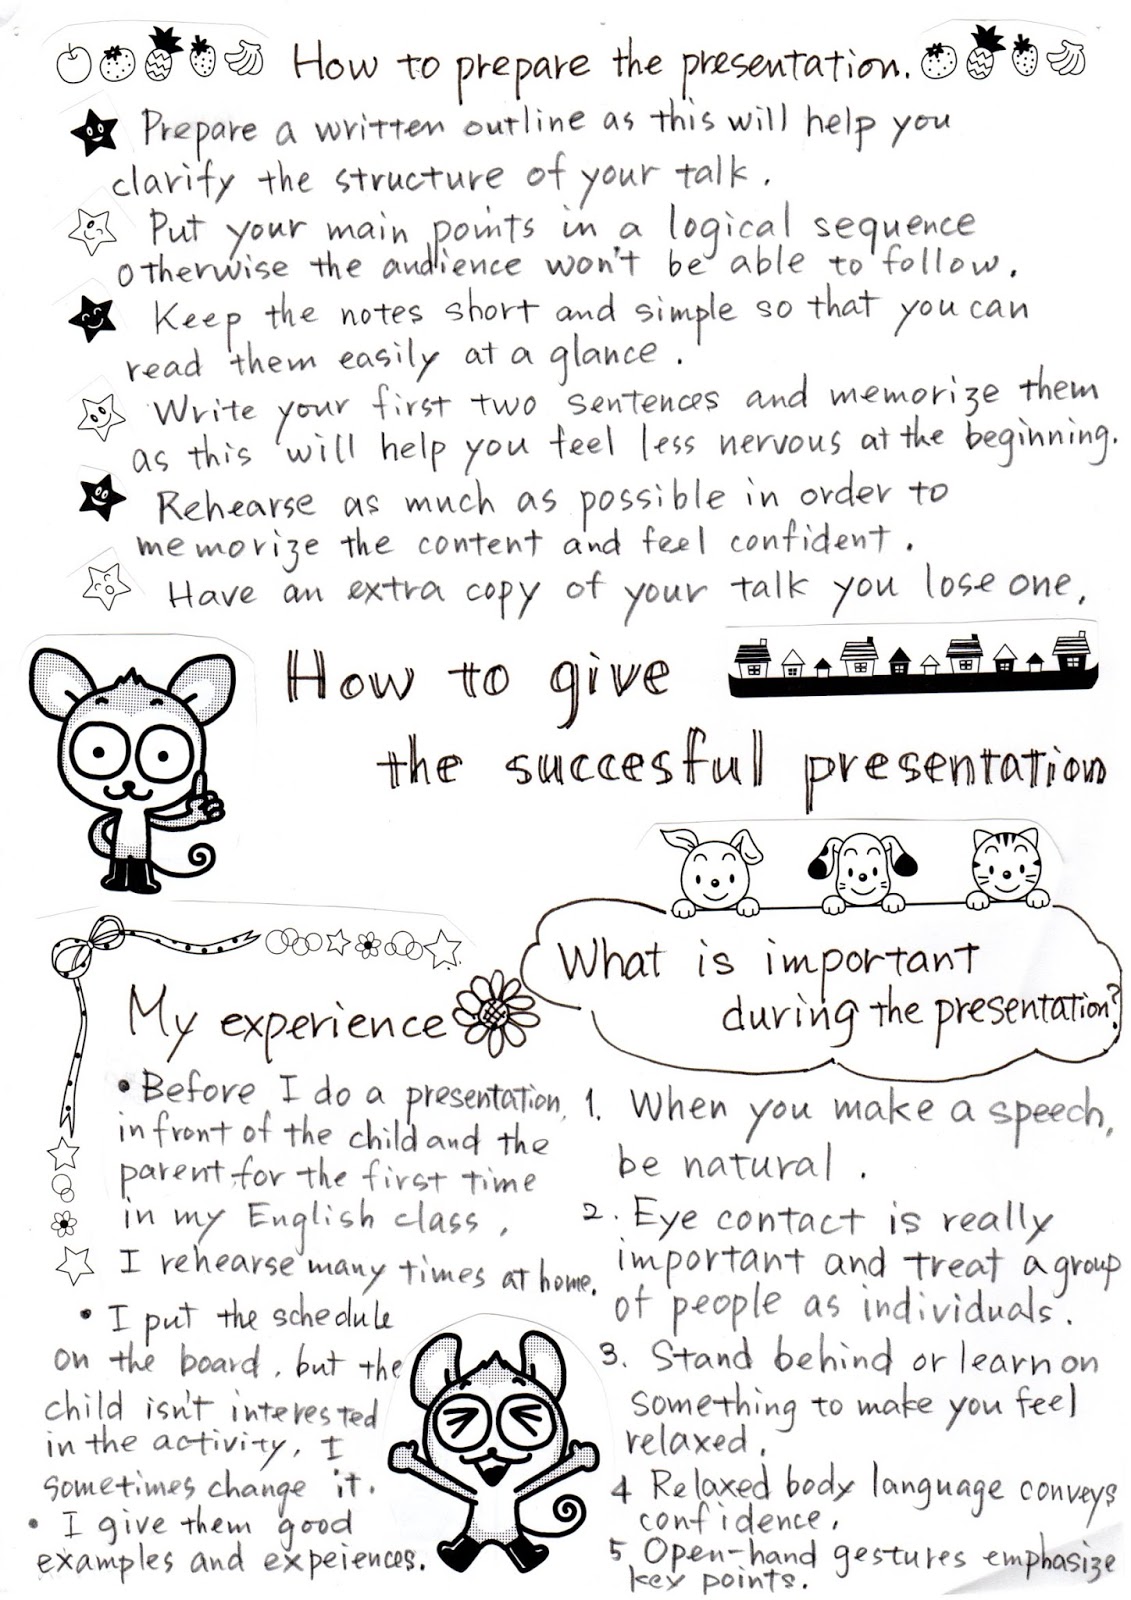 How to prepare the presentation.
Prepare a written outline as this will help you
clarify the structure of your talk.
Put your main points in a logical sequence
otherwise the audience won't be able to follow.
Keep the notes short and simple so that you can
read them easily at a glance.
Write your first two sentences and memorize them
as this will help you feel less nervous at the beginning.
Rehearse as much as possible in order to
memorize the content and feel confident.
Have an extra copy of your talk you lose one.
How to give
the succesful presentation
My experience
• Before I do a presentation,
in front of the child and the
parent, for the first time
in my English class,
I rehearse many times at home.
• I put the schedule
on the board, but the
child isn't interested
in the activity, I
sometimes change it.
• I give them good
examples and expeiences.
What is important
during the presentation?
1. When you make a speech,
be natural.
2. Eye contact is really
important and treat a group
of people as individuals.
3. Stand behind or learn on
something to make you feel
relaxed.
4 Relaxed body language conveys
confidence.
5 Open-hand gestures emphasize
key points.